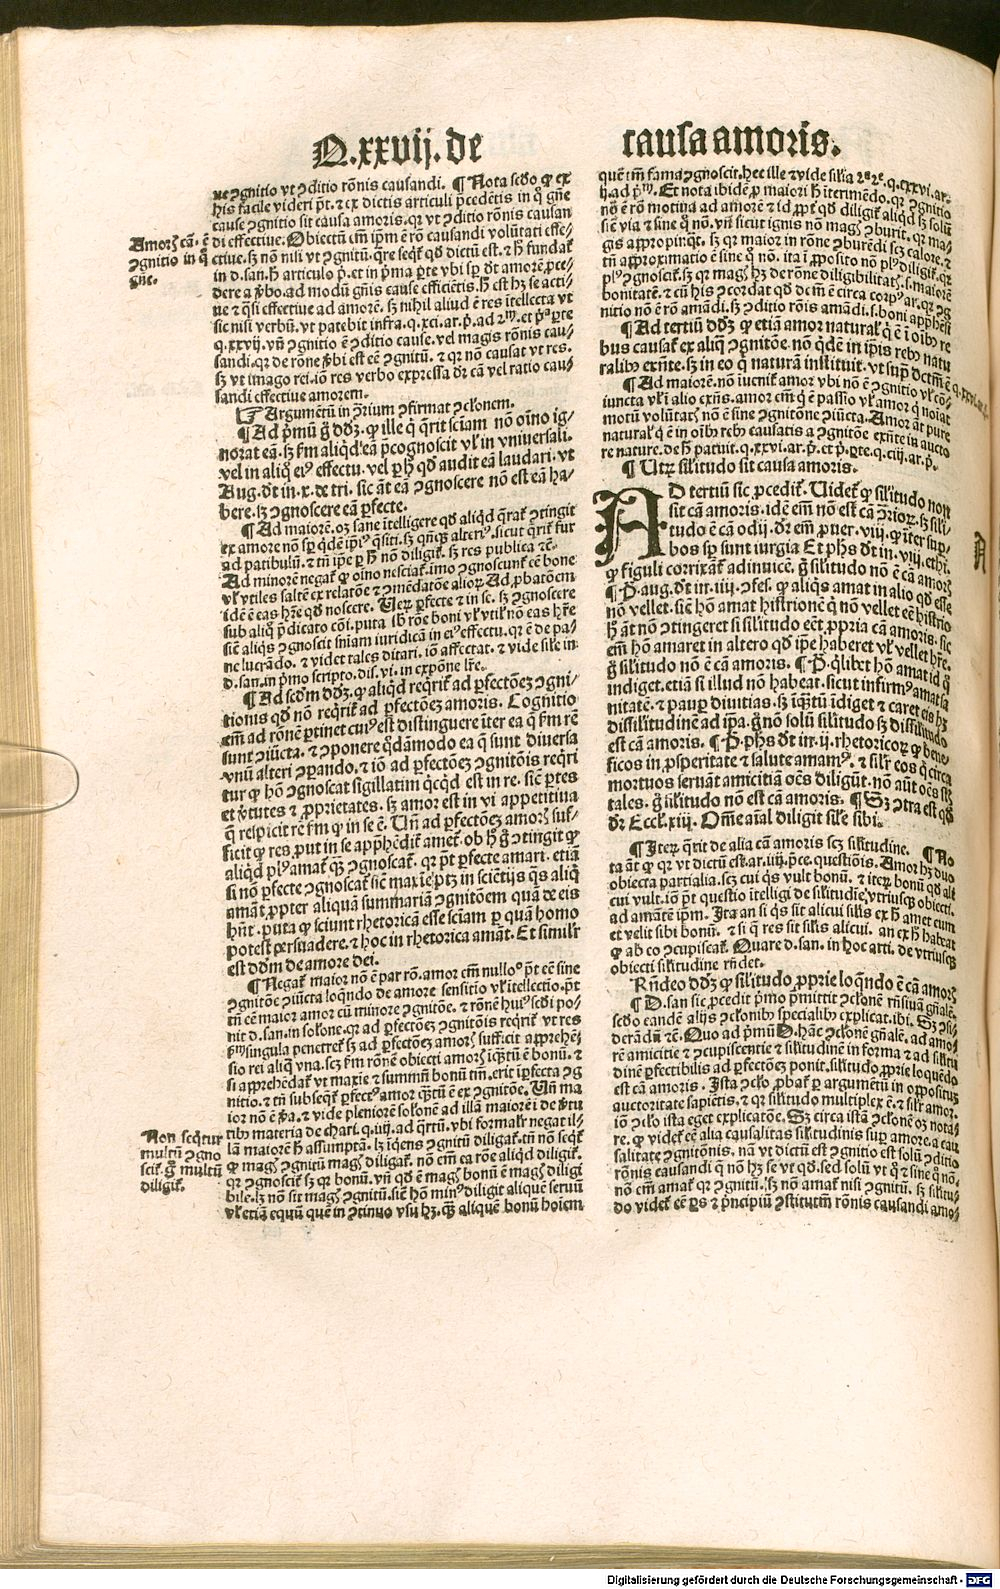 Q.xxvij. de causa amoris.
ue ꝯgnitio vt ꝯditio rōnis causandi. ¶ Nota scďo ꝙ ex
his facile videri pt̄. ⁊ ex dictis articuli p̄cedētis in q̊ gn̄e
cause ꝯgnitio sit causa amoris. qꝛ vt ꝯditio rōnis causan
di effectiue. Obiectū em̄ ip̄m ē rō causandi volūtati effe⸗
ctiue. sꝫ nō nisi vt ꝯgnitū. qre seqt̉ qď dictū est. ⁊ h̄ fundat̉
in d. san. h̄ articulo p̄. et in p̄ma ꝑte vbi sꝑ dt̄ amorē ꝓce⸗
dere a ꝟbo. ad modū gn̄is cause efficiētis. H̄ est hꝫ se acti⸗
ue ⁊ q̄si effectiue ad amorē. sꝫ nihil aliud ē res itellecta vt
sic nisi verbū. vt patebit infra. q. xci. ar. p̄. ad 2ᵐ. et p̄ᵃ ꝑte
q. xxvij. vn̄ ꝯgnitio ē ꝯditio cause. vel magis rōnis cau⸗
sandi. qꝛ de rōne ꝟbi est eē ꝯgnitū. ⁊ qꝛ nō causat vt res.
sꝫ vt imago rei. iō res verbo expressa dꝛ cā vel ratio cau⸗
sandi effectiue amorem.
☞ Argumētū in ꝯtrarium ꝯfirmat ꝯclonem.
¶ Ad p̄mū g̊ ddꝫ. ꝙ ille q̇ q̄rit sciam nō oīno ig⸗
norat eā. sꝫ ẜm aliqď eā p̄cognoscit vl̓ in vniuersali.
vel in aliq̊ eiꝰ effectu. vel ꝑ h̄ qď audit eā laudari. vt
Aug. dt̄ in. x. de tri. sic āt eā ꝯgnoscere nō est eā ha⸗
bere. sꝫ ꝯgnoscere eā ꝑfecte.
¶ Ad maiorē. oꝫ sane itelligere qď aliqď q̄rat̉ ꝯtingit
ex amore nō sꝑ q̇dē ip̄iꝰ q̄siti. sꝫ qn̄qꝫ alteriꝰ. sicut q̄rit̉ fur
ad patibulū. ⁊ tn̄ ip̄e ꝑ h̄ nō diligit̉. sꝫ res publica ⁊c̄.
Ad minorē negat̉ ꝙ oīno nesciat̉. imo ꝯgnoscunt̉ eē bone
vl̓ vtiles saltē ex relatōe ⁊ ꝯmēdatōe alioꝝ. Ad ꝓbatōem
idē ē eas hr̄e qď noscere. Veꝝ ꝑfecte ⁊ in se. sꝫ ꝯgnoscere
sub aliq̊ p̄dicato cōi. puta sb̓ rōe boni vl̓ vtil̓ nō eas hr̄e
siē aliqs ꝯgnoscit sniam iuridicā in eiꝰ effectu. qꝛ ē de pa⸗
ne lucrādo. ⁊ videt tales ditari. iō affectat. ⁊ vide sil̓e in
d. san. in p̄mo scripto. dis. vi. in expōne lr̄e.
¶ Ad scďm ddꝫ. ꝙ aliqď reqrit̉ ad ꝑfectōeꝫ ꝯgni⸗
tionis qď nō reqrit̉ ad ꝑfectōeꝫ amoris. Cognitio
em̄ ad rōnē ꝑtinet cuiꝰ est distinguere īter ea q̄ ẜm rē
sunt ꝯiūcta. ⁊ ꝯponere q̇dāmodo ea q̄ sunt diuersa
vnū alteri ꝯꝑando. ⁊ iō ad ꝑfectōeꝫ ꝯgnitōis reqri
tur ꝙ hō ꝯgnoscat sigillatim qcqd est in re. siē ꝑtes
et ꝟtutes ⁊ ꝓprietates. sꝫ amor est in vi appetitiua
q̄ respicit rē ẜm ꝙ in se ē. Vn̄ ad ꝑfectōeꝫ amoris suf⸗
ficit ꝙ res ꝓut in se apprehēdit̉ amet̉. ob h̄ g̊ ꝯtingit ꝙ
aliqď plꝰ amat̉ q̄ꝫ ꝯgnoscat̉. qꝛ pt̄ ꝑfecte amari. etiā
si nō ꝑfecte ꝯgnoscat̉ siē maxīe ptꝫ in sciētijs qs aliq̄
amāt ꝓpter aliquā summariā ꝯgnitōem quā de eis
hn̄t. puta ꝙ sciunt rhetoricā esse sciam ꝑ quā homo
potest persuadere. ⁊ hoc in rhetorica amāt. Et simil̓r
est ddm de amore dei.
¶ Negat̉ maior nō ē par rō. amor em̄ nullo° pt̄ eē sine
ꝯgnitōe ꝯiūcta loqndo de amore sensitiuo vl̓ itellectīo. pt̄
tn̄ eē maior amor cū minore ꝯgnitōe. ⁊ rōnē huiꝰ scďi po⸗
nit d. san. in solone. qꝛ ad ꝑfectōeꝫ ꝯgnitōis reqrit̉ vt res
ẜm singula penetret̉ sꝫ ad ꝑfectōeꝫ amoris sufficit apprehē⸗
sio rei aliq̄ vna. scꝫ ẜm rōnē obiecti amoris iq̄ꝫtū ē bonū. ⁊
si apprehēdat̉ vt maxīe ⁊ summū bonū tm̄. erit iꝑfecta ꝯg
nitio. ⁊ tn̄ subseqt̉ ꝑfectꝰ amor q̄ꝫtū ē ex ꝯgnitōe. Vn̄ ma
ior nō ē ꝟa. ⁊ vide pleniorē solonē ad illā maiorē i de ꝟtu
tib̓ materia de chari. q. iiij. ad q̄rtū. vbi formal̓r negat il⸗
lā maiorē h̄ assumptā. lꝫ iq̄tens ꝯgnitū diligat̉. tn̄ nō seqt̉
ꝙ magꝭ ꝯgnitū magꝭ diligat̉. nō em̄ ea rōe aliqď diligit̉.
qꝛ ꝯgnoscit̉ sꝫ qꝛ bonū. vn̄ qď ē magꝭ bonū ē magꝭ diligi
bile. lꝫ nō sit magꝭ ꝯgnitū. siē hō minꝰ diligit aliquē seruū
vl̓ etiā equū quē in ꝯtinuo vsu hꝫ. q̄ꝫ aliquē bonū hoīem
Amorꝭ cā. ē
ꝯgnitio in q̊
gn̄e.
Non seqtur
multū ꝯgno
scit̉. g̊ multū
diligit̉.
quē tm̄ fama ꝯgnoscit. hec ille ⁊ vide sil̓ia 2ᵃ2ᵉ. q. cxxvi. ar.
h̄. ad p̄ᵐ. Et nota ibidē ꝓ maiori h̄ itermēdo. ꝙ ꝯgnitio
nō ē rō motiua ad amorē ⁊ id ꝓpt̉ qď diligit̉ aliqď sꝫ solū
siē via ⁊ sine q̊ nō. vn̄ sicut ignis nō magꝭ ꝯburit. qꝛ ma⸗
gis appropinqt̉. sꝫ qꝛ maior in rōne ꝯburēdi scꝫ calore. ⁊
tn̄ approximatio ē sine q̊ nō. ita i ꝓposito nō plꝰ diligit̉. qꝛ
plꝰ ꝯgnoscit̉. sꝫ qꝛ magꝭ hꝫ de rōne diligibilitatꝭ. s. maiorē
bonitatē. ⁊ cū his ꝯcordat qď de m̄ ē circa corpꝰ ar. qꝛ ꝯg
nitio nō ē rō amādi. sꝫ ꝯditio rōis amādi. s. boni apphēsi
¶ Ad tertiū ddꝫ ꝙ etiā amor natural̓ q̇ ē i oīb̓ re
bus causat̉ ex aliq̄ ꝯgnitōe. nō q̇dē in ip̄is reb̓ natu
ralib̓ exn̄te. sꝫ in eo q̇ naturā instituit. vt supͣ dictm̄ ē
¶ Ad maiorē. nō iuenit̉ amor vbi nō ē ꝯgnitio vl̓ cō⸗
iuncta vl̓ i alio exn̄s. amor em̄ q̇ ē passio vl̓ amor q̇ noīat
motū volūtatꝭ nō ē sine ꝯgnitōne ꝯiūcta. Amor āt pure
natural̓ q̇ ē in oīb̓ reb̓ causatis a ꝯgnitōe exn̄te in aucto
re nature. de h̄ patuit. q. xxvi. ar. p̄. et p̄. ꝑte. q. ciij. ar. p̄.
¶ Utꝝ sil̓itudo sit causa amoris.
AD tertiū sic ꝓcedit̉. Uidet̉ ꝙ sil̓itudo non
sit cā amoris. idē em̄ nō est cā ꝯrioꝝ. sꝫ sili
tudo ē cā odij. dr̄ em̄ ꝓuer. viij. ꝙ iter supͣ
bos sꝑ sunt iurgia Et phs dt̄ in. viij. ethi.
ꝙ figuli corrixāt̉ adinuicē. g̊ silitudo nō ē cā amorꝭ
¶ P. aug. dt̄ in. iiij. ꝯfes. ꝙ aliqs amat in alio qď esse
nō vellet. siē hō amat histrionē q̇ nō vellet eē histrio
h̄ āt nō ꝯtingeret si silitudo eēt ꝓpria cā amoris. sic
em̄ hō amaret in altero qď ip̄e haberet vl̓ vellet hr̄e.
g̊ silitudo nō ē cā amoris. ¶ P. q̇libet hō amat id q̊
indiget. etiā si illud nō habeat. sicut infirmꝰ amat sa
nitatē. ⁊ pauꝑ diuitias. sꝫ iq̄ꝫtū idiget ⁊ caret eis hꝫ
dissilitudinē ad ip̄a. g̊ nō solū silitudo sꝫ dissilitudo
est cā amoris. ¶ P. phs dt̄ in. ij. rhetoricoꝝ ꝙ bene⸗
ficos in ꝓsperitate ⁊ salute amamꝰ. ⁊ sil̓r eos q̇ circa
mortuos seruāt amicitiā oēs diligūt. nō aūt oēs st̄
tales. g̊ silitudo nō est cā amoris. ¶ Sꝫ ꝯtra est qď
dr̄ Eccl̓. xiij. Om̄e aīal diligit sil̓e sibi.
¶ Iteꝝ q̄rit de alia cā amoris scꝫ silitudine. ¶ No
ta āt ꝙ qꝛ vt dictū est. ar. iiij. p̄ce. questiōis. Amor hꝫ duo
obiecta partialia. scꝫ cui q̇s vult bonū. ⁊ iteꝝ bonū qď ali
cui vult. iō pt̄ questio itelligi de silitudīe vtriusqꝫ obiecti.
ad amātē ip̄m. Ita an si q̇s sit alicui silis ex h̄ amet eum
et velit sibi bonū. ⁊ si q̄ res sit silis alicui. an ex h̄ habeat
ꝙ ab eo ꝯcupiscat̉. Quare d. san. in hoc arti. de vtriusqꝫ
obiecti silitudine rn̄det.
Rn̄deo ddꝫ ꝙ silitudo ꝓprie loq̄ndo ē cā amorꝭ
¶ D. san sic ꝓcedit p̄mo p̄mittit ꝯclonē rn̄siuā gn̄alē.
scďo eandē alijs ꝯclonib̓ specialib̓ explicat. ibi. Sꝫ ꝯsi⸗
derādū ⁊c̄. Quo ad p̄mū D. hāc ꝯclonē gn̄alē. ad amo⸗
rē amicitie ⁊ ꝯcupiscentie ⁊ silitudinē in forma ⁊ ad silitu
dinē ꝑfectibilis ad ꝑfectōeꝫ ponit. silitudo ꝓprie loquēdo
est cā amoris. Ista ꝯclo ꝓbat̉ ꝑ argumētū in oppositus
auctoritate sapiētis. ⁊ qꝛ silitudo multiplex ē. ⁊ sil̓r amor.
iō ꝯclo ista eget explicatōe. Sꝫ circa istā ꝯclonē oꝫ nota⸗
re. ꝙ videt̉ eē alia causalitas silitudinis suꝑ amorē. a cau
salitate ꝯgnitōnis. nā vt dictū est ꝯgnitio est solū ꝯditio
rōnis causandi q̄ nō hꝫ se vt qď. sed solū vt q̊ ⁊ sine q̊ nō.
nō em̄ amat̉ qꝛ ꝯgnitū. lꝫ nō amat̉ nisi ꝯgnitū. sꝫ silitu⸗
do videt̉ eē ꝑs ⁊ p̄ncipiū ꝯstitutm̄ rōnis causandi amo⸗
A
Digitalisierung gefördert durch die Deutsche Forschungsgemeinschaft - DFG